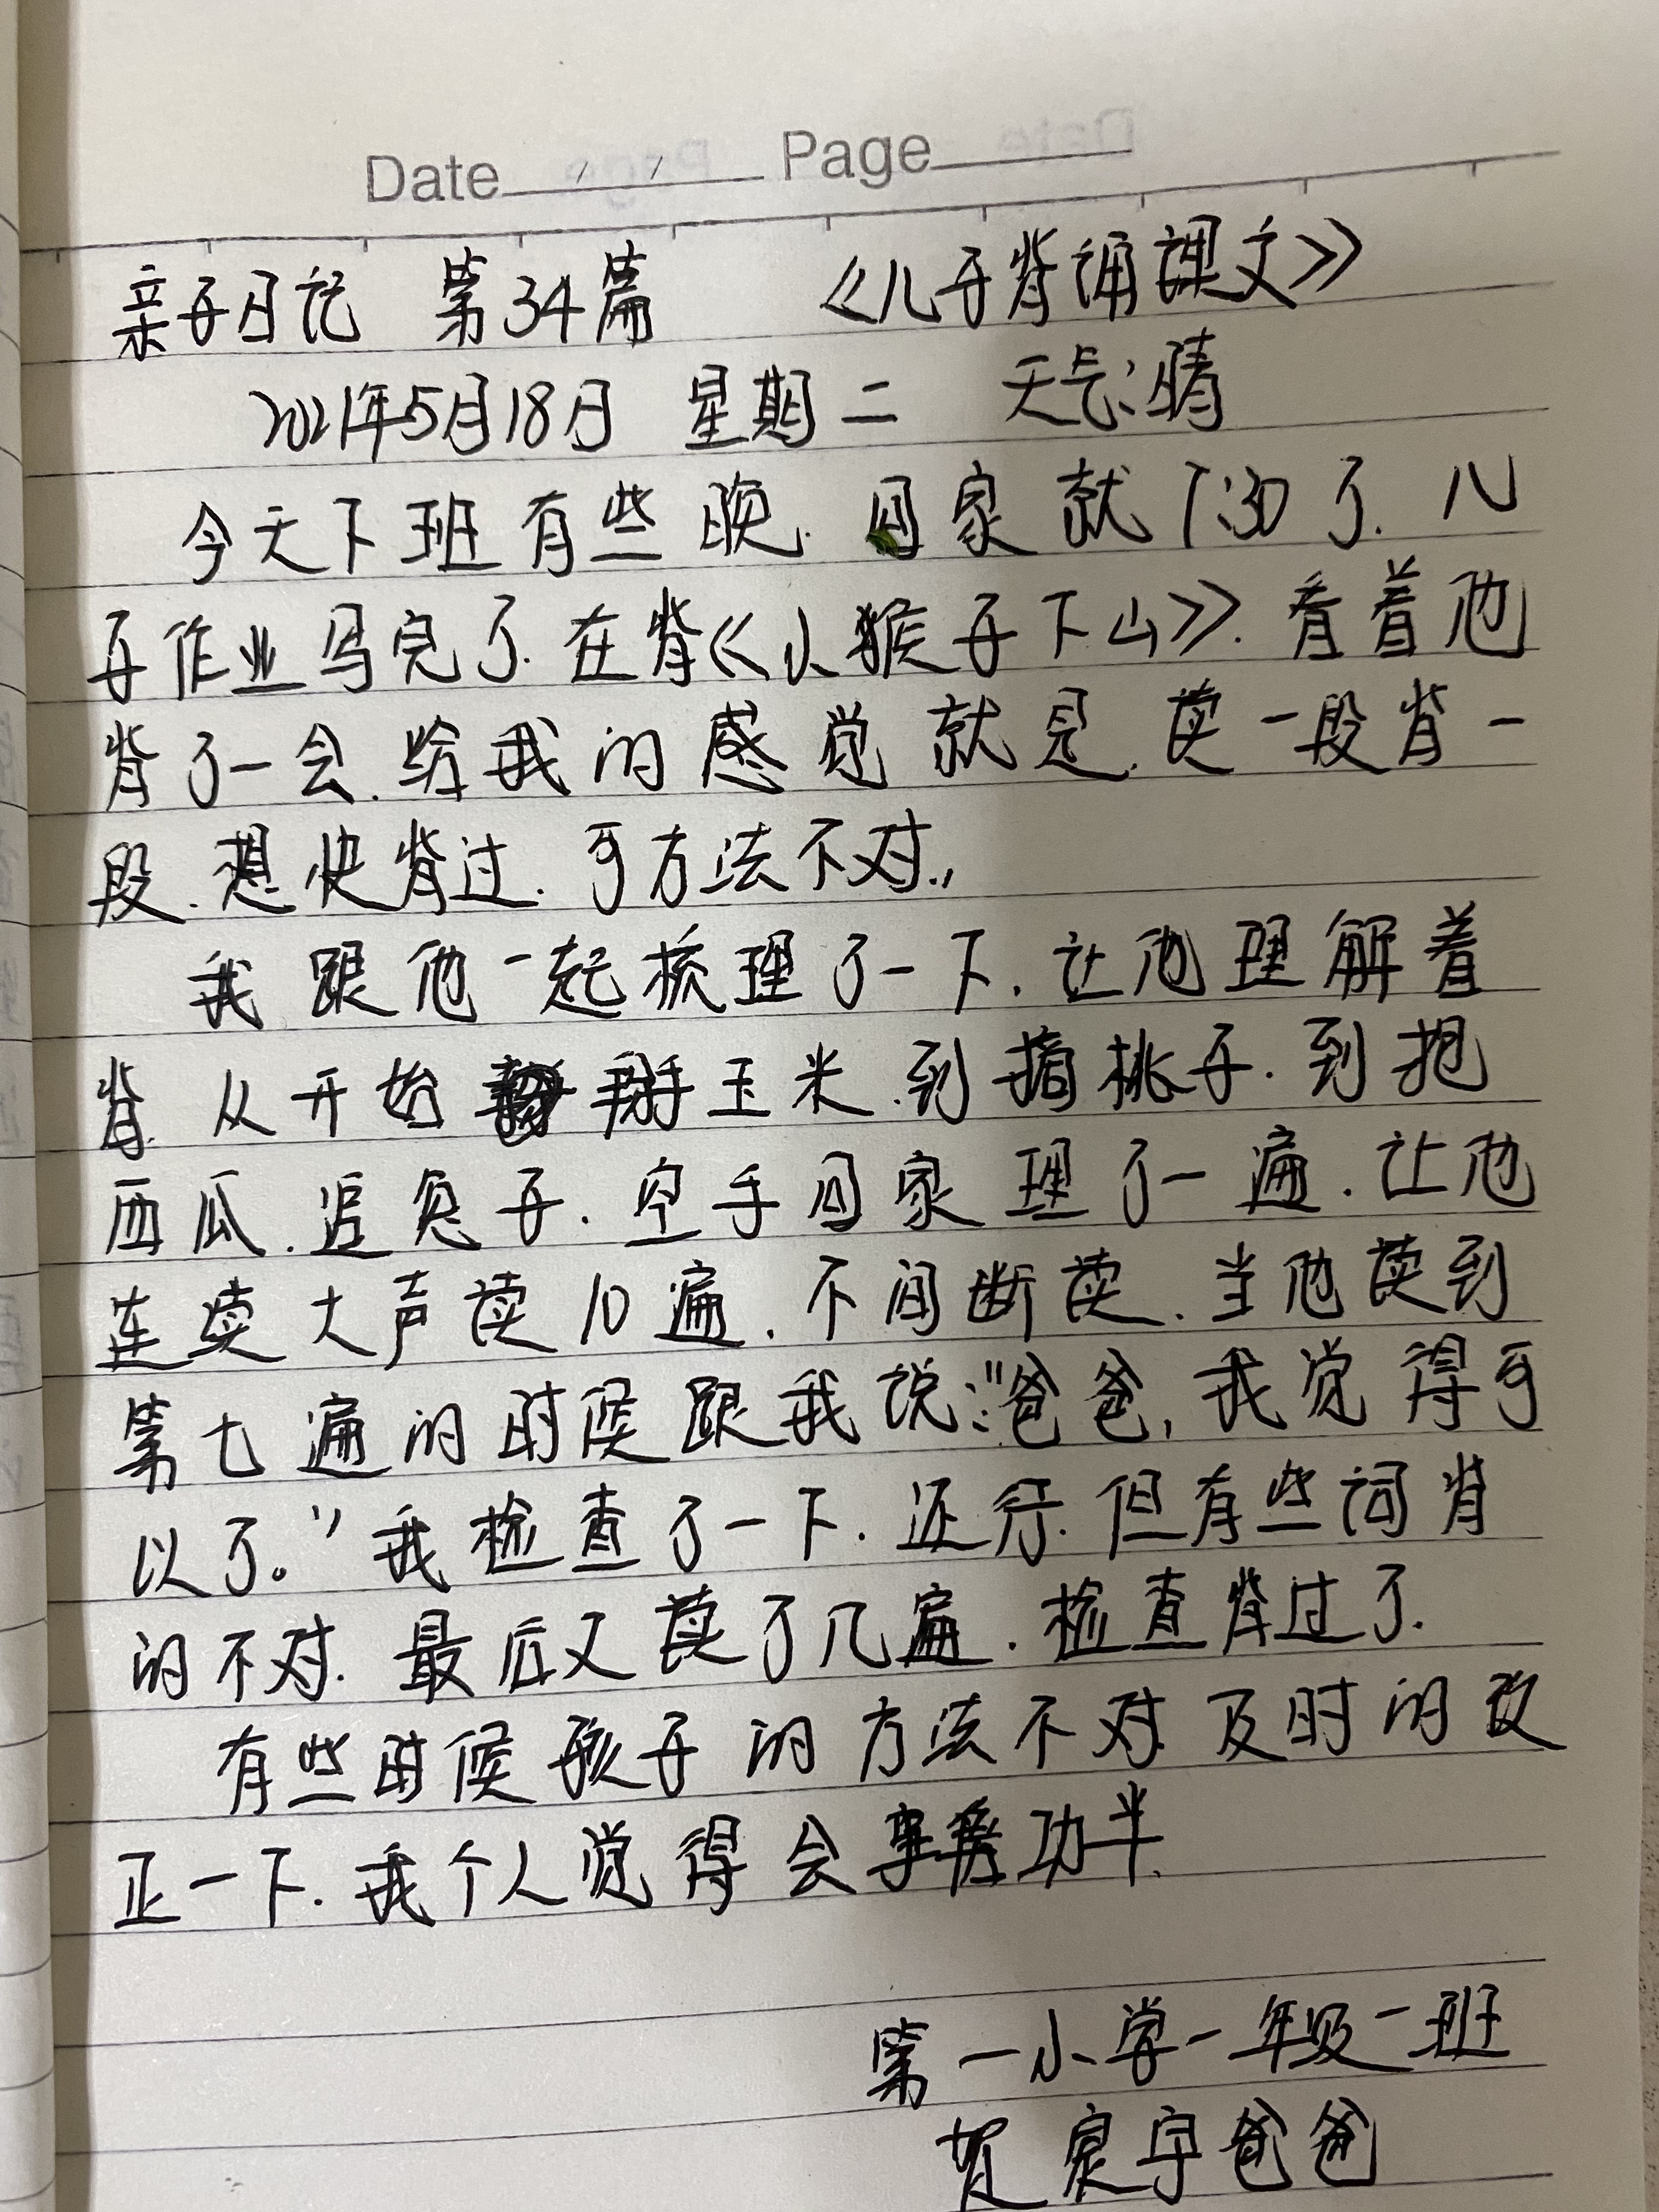 Date / / Page
亲子日记 第34篇 《儿子背诵课文》
2021年5月18日 星期二 天气:晴
今天下班有些晚.回家就7:30了.儿
子作业写完了.在背《小猴子下山》.看着他
背了一会.给我的感觉就是.读一段背一
段.想快背过.可方法不对.,
我跟他一起梳理了一下.让他理解着
背.从开始掰玉米.到摘桃子.到抱
西瓜.追兔子.空手回家理了一遍.让他
连续大声读10遍.不间断读.当他读到
第七遍的时候跟我说:"爸爸,我觉得可
以了。"我检查了一下.还行.但有些词背
的不对.最后又读了几遍.检查背过了.
有些时候孩子的方法不对.及时的改
正一下.我个人觉得会事倍功半.
第一小学一年级一班
贺宇爸爸